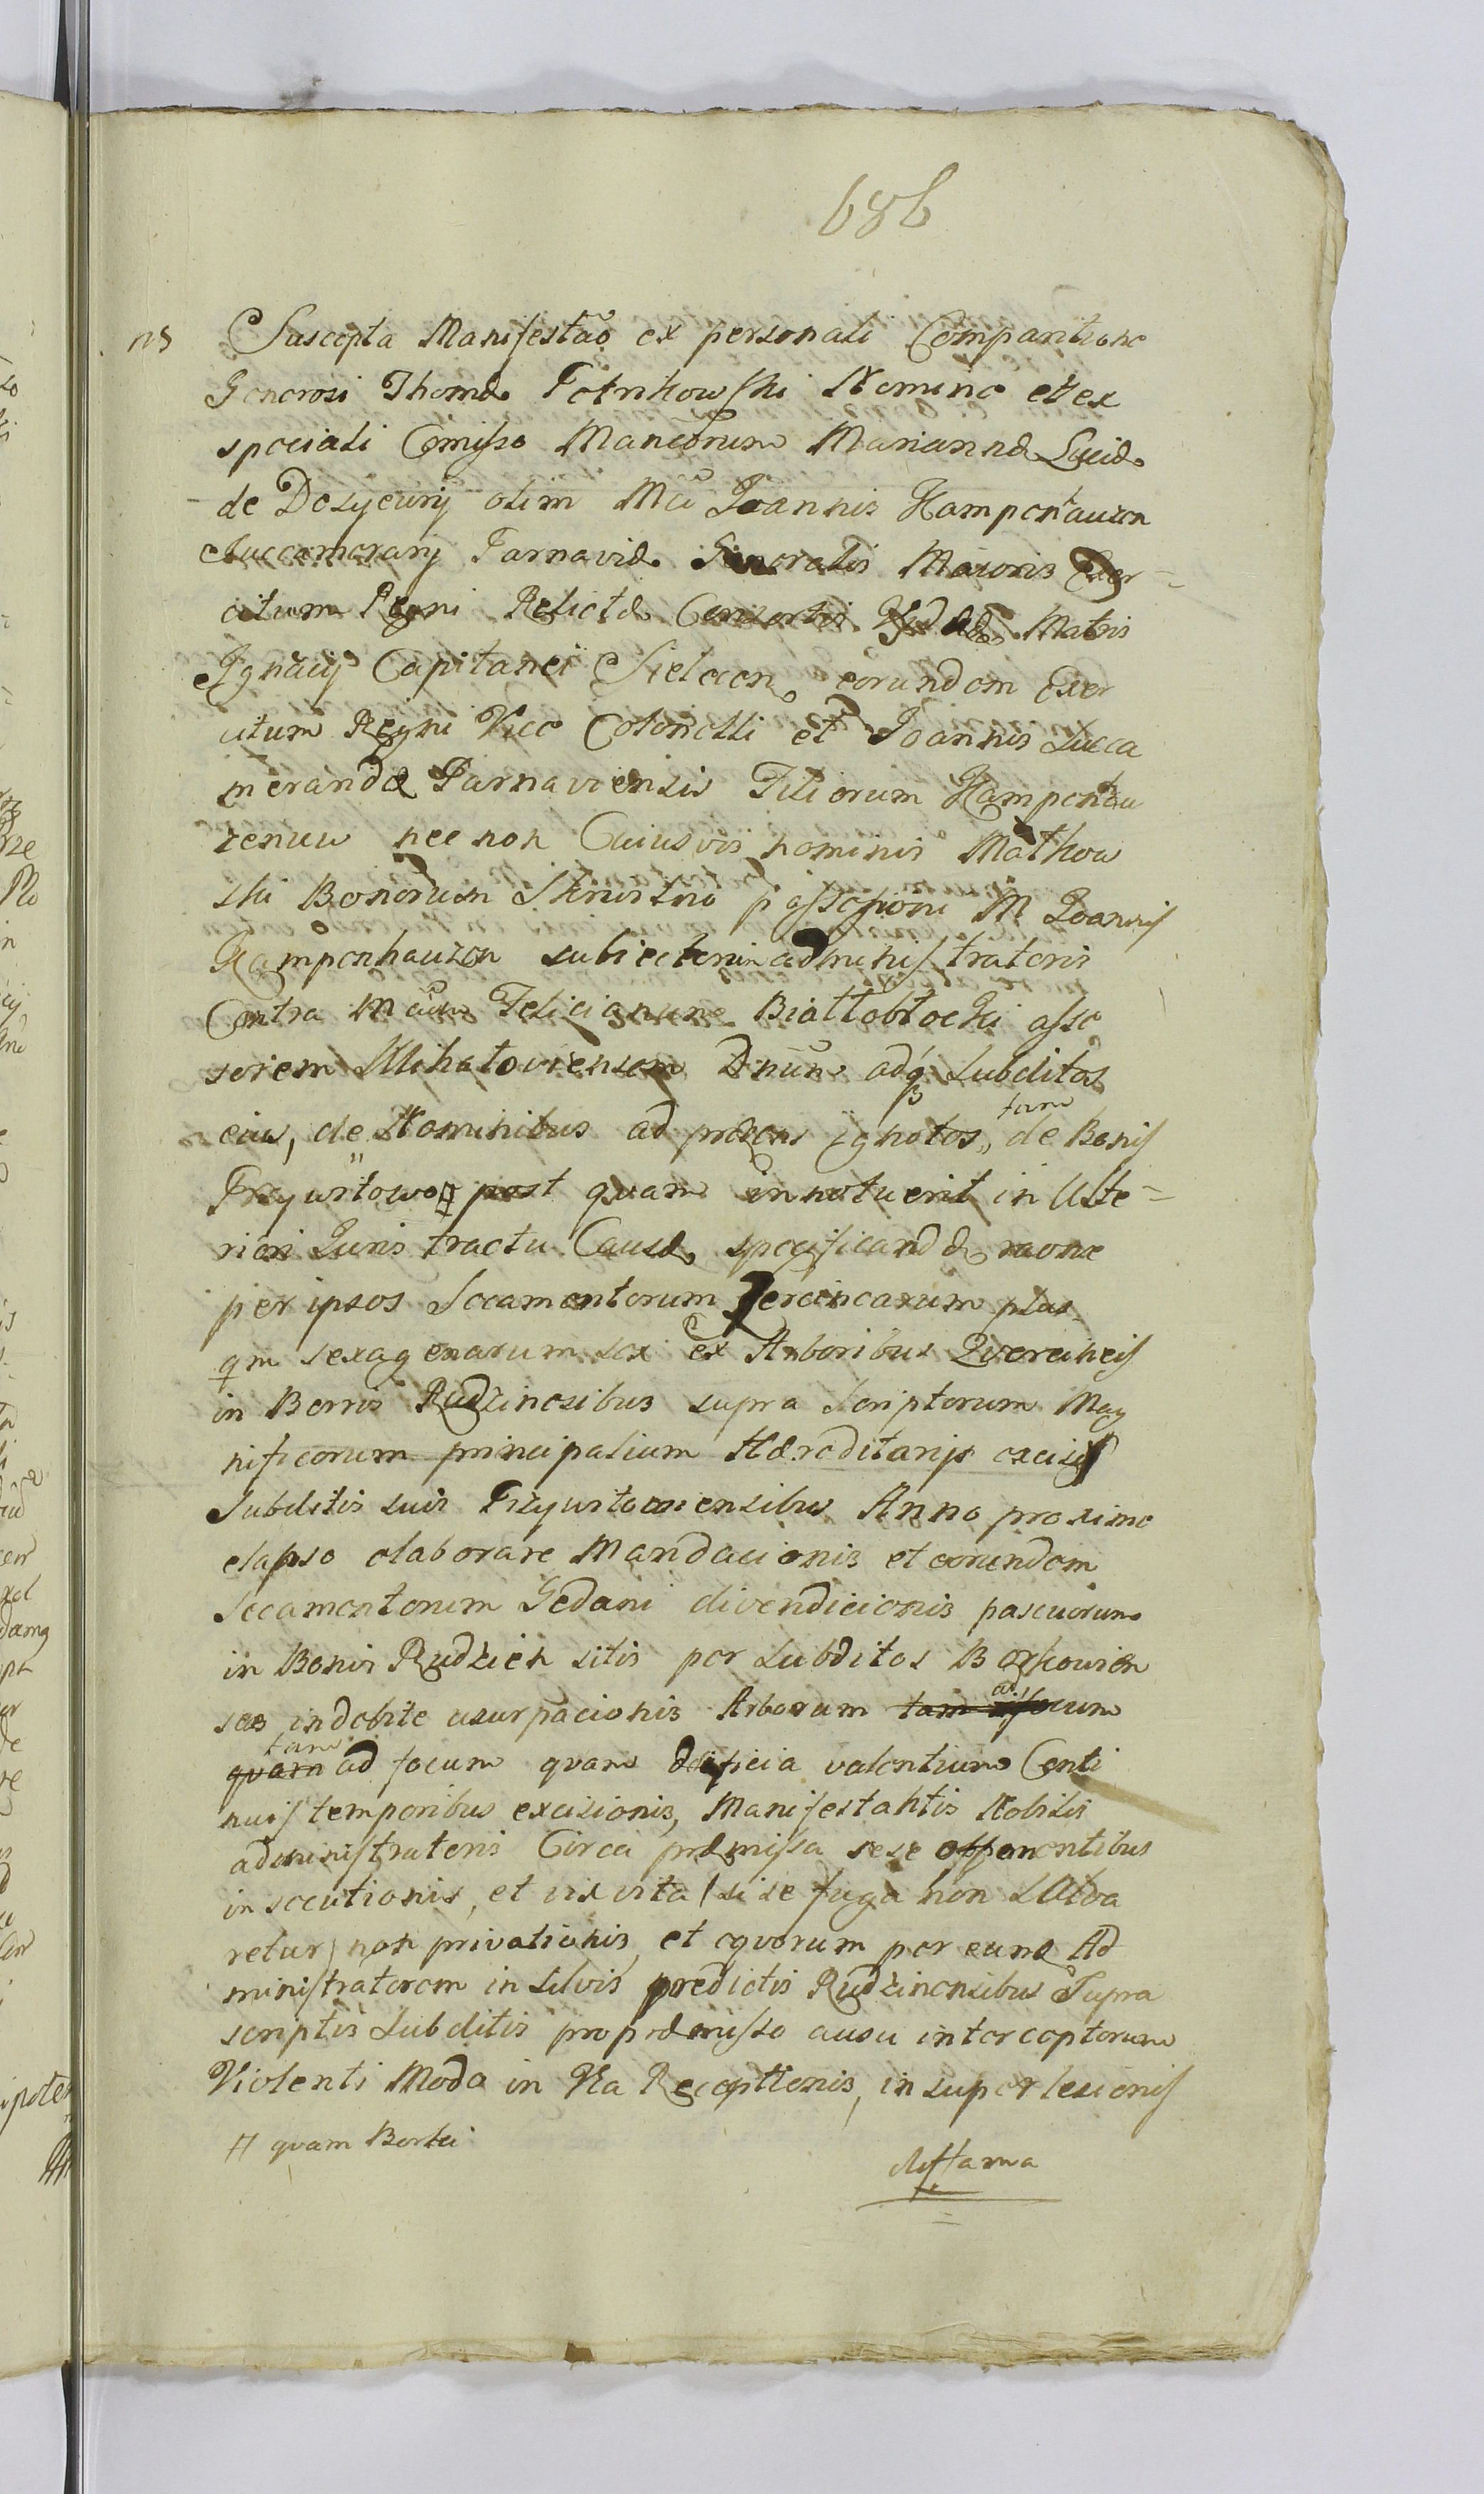 686
ns Suscepta Manifestão ex personali Comparitione
Generosi Thomæ Nomine et ex
speciali Comisso Mancorum Mariannæ Luciæ
de olim Mci Joannis Kampenhauzen
Succamerarij Parnaviæ Generalis Maioris Exer-
cituum Regni Relictæ Consortis Matris
Ignacij Capitanei eorundem Exer
cituum Regni Vice Colonelli et Joannis Succa
merandæ Parnaviensis Filiorum Kampenhau
zenuw nec non Cuiusvis nominis Mathow
ski Bonorum possessioni M Joannis
Kampenhauzen subiectorum administratoris
Contra Mcum Felicianum Białłobłocki asse
sorem Mihatoviensem Dnum adq subditos
eius, de Nominibus ad præsens ignotos, tam de Bonis
Przyustowo # post quam innotuerit in Ulte-
riori Juris tractu Causæ specificandæ raone
per ipsos Secamentorum plus
qm sexagenarum sex ex Arboribus Quercineis
in Borris Rudzinesibus supra Scriptorum Mag
nificorum principalium Hæreditarijs excisis
Subditis suis Przyustoviensibus Anno proxime
elapso elaborare Mandacionis et eorundem
Secamentorum Gedani divendicionis pascuorum
in Bonis Rudzien sitis per Subditos Borkowien
ses indebite usurpacionis Arborum tam ad focum
quam tam ad focum quam ædificia valentium Conti
nuis temporibus excisionis, Manifestantis Nobilis
administratoris Circa præmissa sese opponentibus
insecutionis, et vix vita (si se fuga non salva
retur) non privationis, et equorum per eundem Ad
ministratorem in silvis prædictis Rudzinensibus Supra
scriptis Subditis pro præmisso ausu interceptorum
Violenti Modo in Via Receptionis, insuper lesionis
# quam Borki
diffama